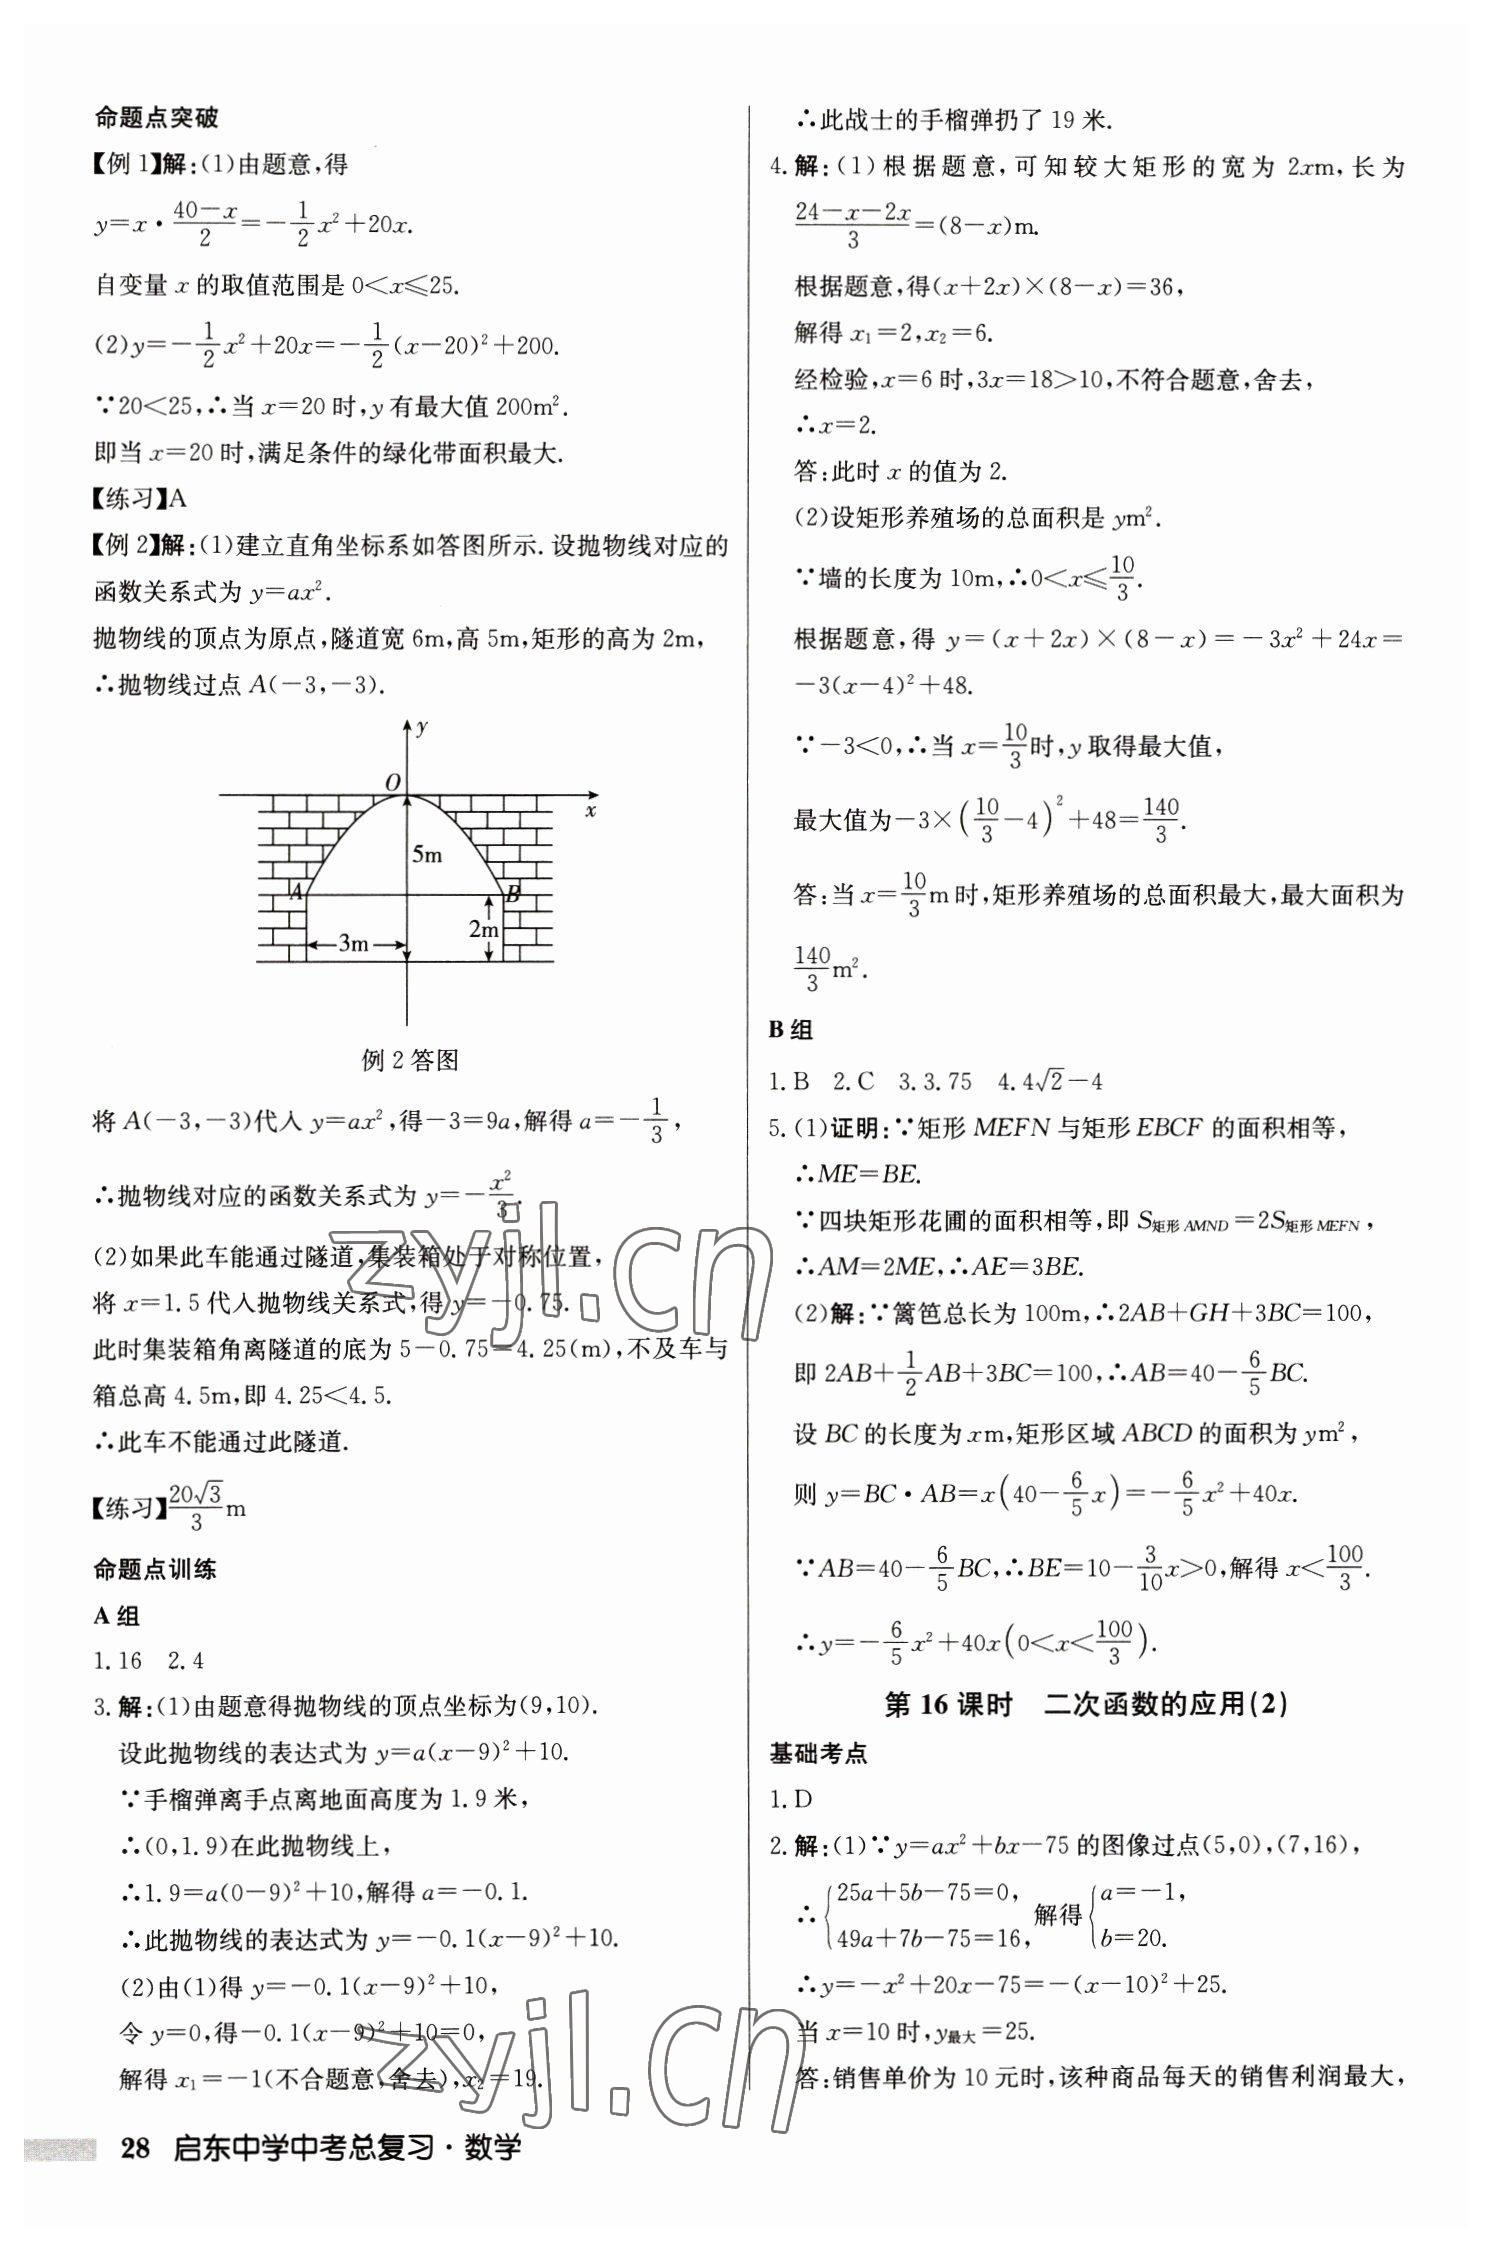 命题点突破
【例1】解:(1)由题意,得
y=x·\frac{40-x}{2}=-\frac{1}{2}x²+20x.
自变量 x 的取值范围是 0<x⩽25.
(2)y=-\frac{1}{2}x²+20x=-\frac{1}{2}(x-20)²+200.
∵20<25,∴当 x=20 时,y 有最大值 200m².
即当 x=20 时,满足条件的绿化带面积最大.
【练习】A
【例2】解:(1)建立直角坐标系如答图所示.设抛物线对应的
函数关系式为 y=ax².
抛物线的顶点为原点,隧道宽 6m,高 5m,矩形的高为 2m,
∴抛物线过点 A(-3,-3).
y
O
x
5m
A
B
2m
3m
例 2 答图
将 A(-3,-3)代入 y=ax²,得-3=9a,解得 a=-\frac{1}{3},
∴抛物线对应的函数关系式为 y=-\frac{x²}{3}.
(2)如果此车能通过隧道,集装箱处于对称位置,
将 x=1.5 代入抛物线关系式,得 y=-0.75.
此时集装箱角离隧道的底为 5-0.75=4.25(m),不及车与
箱总高 4.5m,即 4.25<4.5.
∴此车不能通过此隧道.
【练习】\frac{20√3}{3}m
命题点训练
A 组
1.16 2.4
3.解:(1)由题意得抛物线的顶点坐标为(9,10).
设此抛物线的表达式为 y=a(x-9)²+10.
∵手榴弹离手点离地面高度为 1.9 米,
∴(0,1.9)在此抛物线上,
∴1.9=a(0-9)²+10,解得 a=-0.1.
∴此抛物线的表达式为 y=-0.1(x-9)²+10.
(2)由(1)得 y=-0.1(x-9)²+10,
令 y=0,得-0.1(x-9)²+10=0,
解得 x₁=-1(不合题意,舍去),x₂=19.
∴此战士的手榴弹扔了 19 米.
4.解:(1)根据题意,可知较大矩形的宽为 2xm,长为
\frac{24-x-2x}{3}=(8-x)m.
根据题意,得(x+2x)×(8-x)=36,
解得 x₁=2,x₂=6.
经检验,x=6 时,3x=18>10,不符合题意,舍去,
∴x=2.
答:此时 x 的值为 2.
(2)设矩形养殖场的总面积是 ym².
∵墙的长度为 10m,∴0<x⩽\frac{10}{3}.
根据题意,得 y=(x+2x)×(8-x)=-3x²+24x=
-3(x-4)²+48.
∵-3<0,∴当 x=\frac{10}{3}时,y 取得最大值,
最大值为-3×(\frac{10}{3}-4)²+48=\frac{140}{3}.
答:当 x=\frac{10}{3}m 时,矩形养殖场的总面积最大,最大面积为
\frac{140}{3}m².
B 组
1.B 2.C 3.3.75 4.4√2-4
5.(1)证明:∵矩形 MEFN 与矩形 EBCF 的面积相等,
∴ME=BE.
∵四块矩形花圃的面积相等,即 S矩形AMND=2S矩形MEFN,
∴AM=2ME,∴AE=3BE.
(2)解:∵篱笆总长为 100m,∴2AB+GH+3BC=100,
即 2AB+\frac{1}{2}AB+3BC=100,∴AB=40-\frac{6}{5}BC.
设 BC 的长度为 xm,矩形区域 ABCD 的面积为 ym²,
则 y=BC·AB=x(40-\frac{6}{5}x)=-\frac{6}{5}x²+40x.
∵AB=40-\frac{6}{5}BC,∴BE=10-\frac{3}{10}x>0,解得 x<\frac{100}{3}.
∴y=-\frac{6}{5}x²+40x(0<x<\frac{100}{3}).
第 16 课时 二次函数的应用(2)
基础考点
1.D
2.解:(1)∵y=ax²+bx-75 的图像过点(5,0),(7,16),
∴{25a+5b-75=0, 49a+7b-75=16, 解得{a=-1, b=20.
∴y=-x²+20x-75=-(x-10)²+25.
当 x=10 时,y最大=25.
答:销售单价为 10 元时,该种商品每天的销售利润最大,
28 启东中学中考总复习·数学
zyjl.cn
zyjl.cn